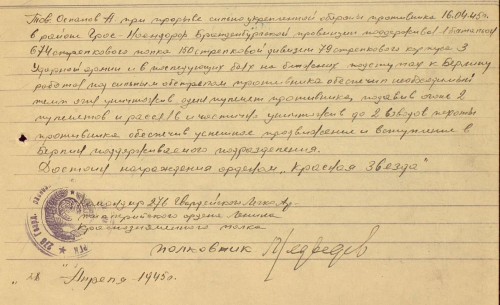 Тов Оспанов А. при прорыве сильно укрепленной обороны противника 16.04.45г.
в районе Грос-Ноендорф Бранденбургской провинции поддерживая 1 батальон
674 стрелкового полка 150 стрелковой дивизии 79 стрелкового корпуса 3
Ударной армии и в последующих боях на ближних подступах к Берлину
работая под сильным обстрелом противника обеспечил необходимый
темп огня уничтожив один пулемет противника, подавив огонь 2
пулеметов и рассеяв и частично уничтожив до 2 взводов пехоты
противника обеспечив успешное продвижение и вступление в
Берлин поддерживаемого подразделения.
Достоин награждения орденом „Красная Звезда"
Командир 276 Гвардейского Легко Ар-
тиллерийского ордена Ленина
Краснознаменного полка
полковник Медведев
"28" Апреля-1945г.